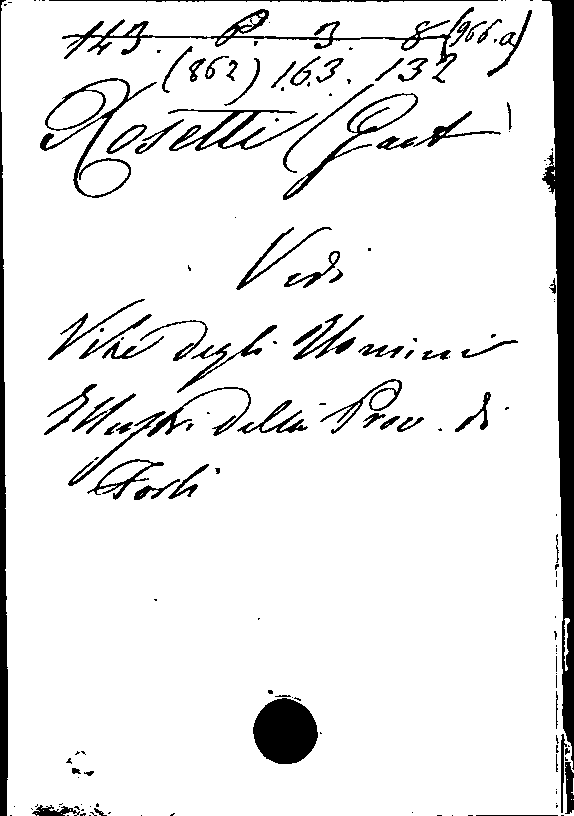 143. P. 3. 8 (966.a)
(862) 163. 132
Rosetti (Gaet
Vedi
Vite degli Uomini
Illustri della Prov. di
Forlì